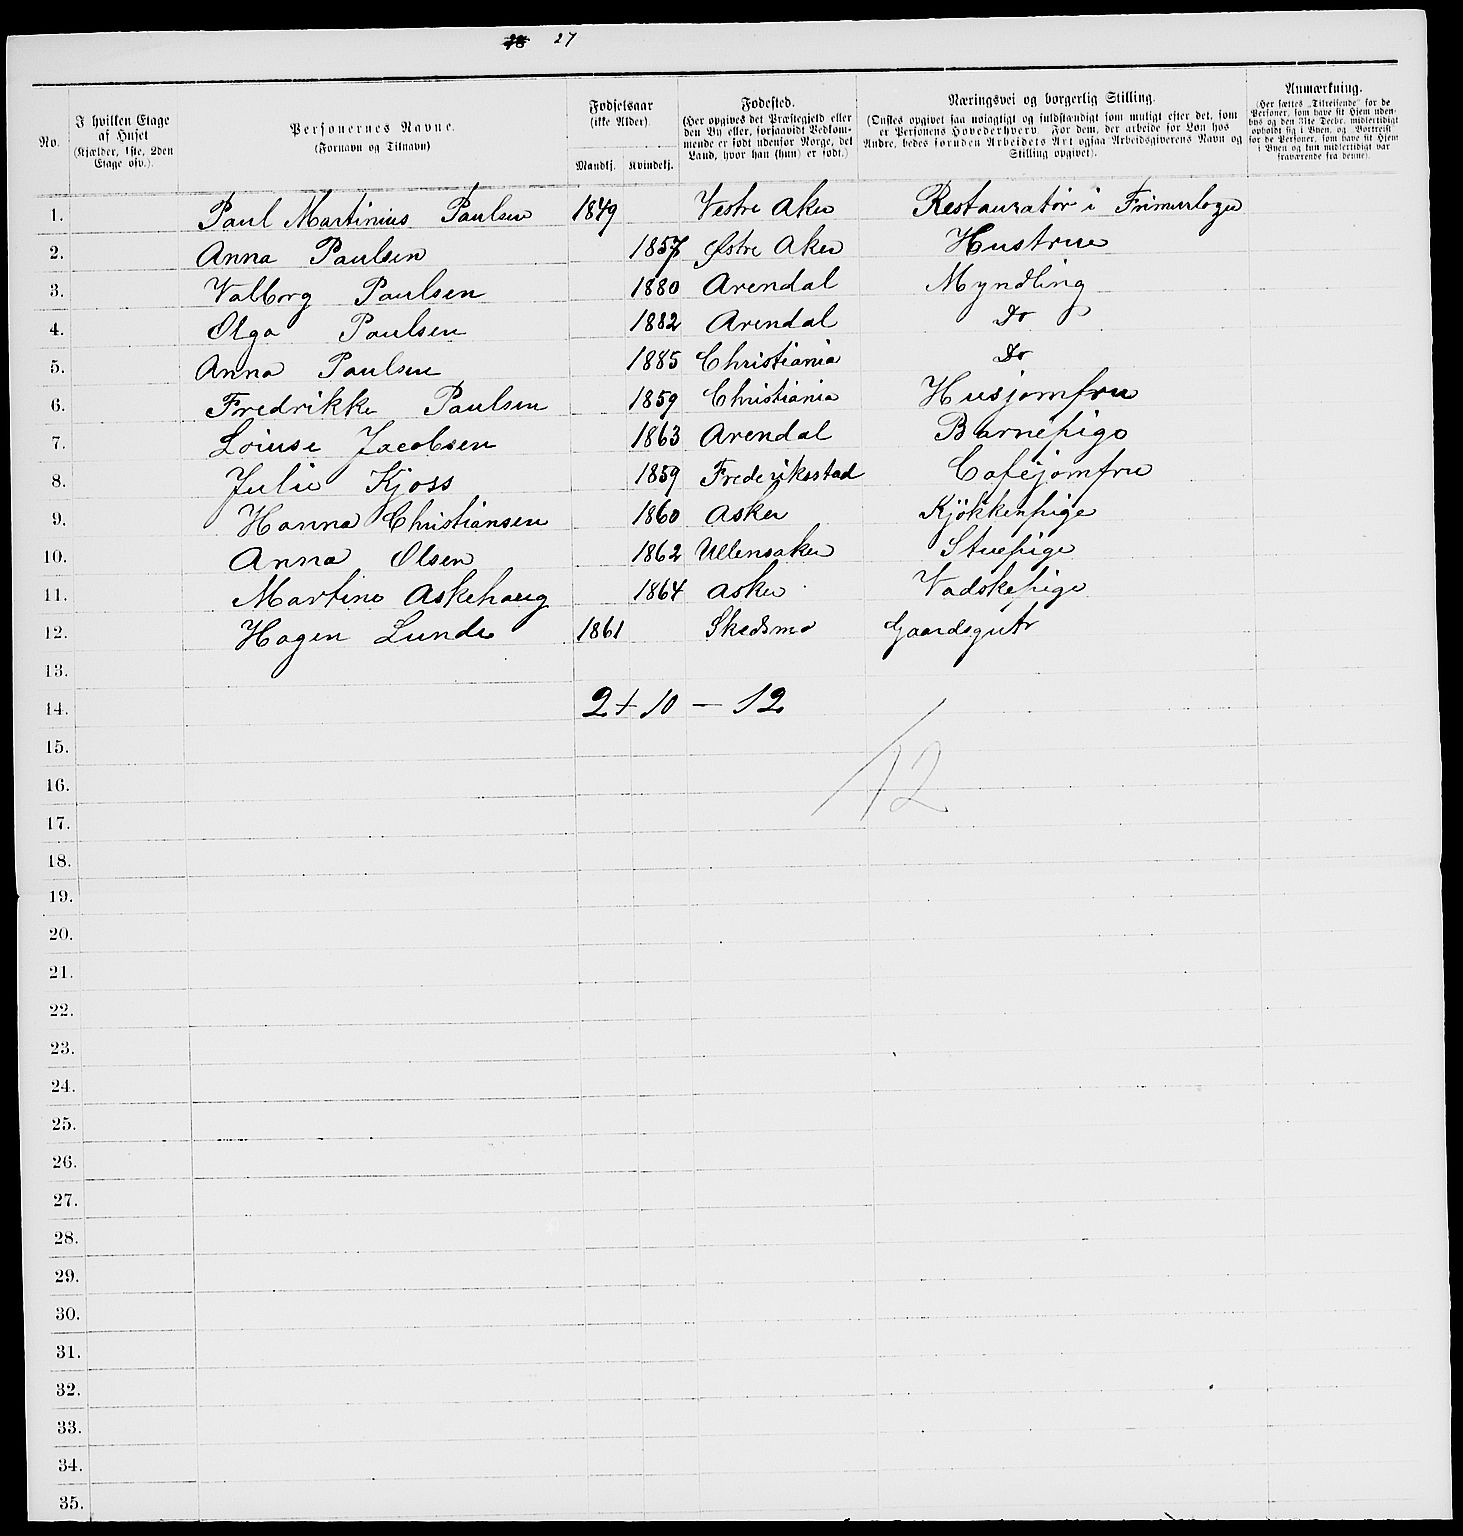 27
No.
I hvilken Etage af Huset (Kjælder, 1ste, 2den Etage osv.).
Personernes Navne. (Fornavn og Tilnavn)
Fødselsaar (ikke Alder).
Mandkj. Kvindekj.
Fødested. (Her opgives det Præstegjeld eller den By eller, forsaavidt Vedkommende er født udenfor Norge, det Land, hvor han (hun) er født.)
Næringsvei og borgerlig Stilling. (Ønskes opgivet saa nøiagtigt og fuldstændigt som muligt efter det, som er Personens Hovederhverv. For dem, der arbeide for Løn hos Andre, bedes foruden Arbeidets Art ogsaa Arbeidsgiverens Navn og Stilling opgivet).
Anmærkning. (Her sættes „Tilreisende“ for de Personer, som have sit Hjem udenbys og den 31te Decbr. midlertidigt opholdt sig i Byen, og „Bortreist“ for de Personer, som have sit Hjem i Byen og kun midlertidigt var fraværende fra denne).
1. Paul Martinius Paulsen 1849 Vestre Aker Restauratør i Frimurlogen
2. Anna Paulsen 1857 Østre Aker Hustrue
3. Valborg Paulsen 1880 Arendal Myndling
4. Olga Paulsen 1882 Arendal Do
5. Anna Paulsen 1885 Christiania Do
6. Fredrikke Paulsen 1859 Christiania Husjomfru
7. Loiuse Jacobsen 1863 Arendal Barnepige
8. Julie Kjoss 1859 Frederiksstad Cafejomfru
9. Hanna Christiansen 1860 Asker Kjökkenpige
10. Anna Olsen 1862 Ullensaker Stuepige
11. Martine Askehaug 1864 Asker Vadskepige
12. Hagen Lunde 1861 Skedsmo Gaardsgut
13.
14. 2 + 10 — 12
15.
16. 12
17.
18.
19.
20.
21.
22.
23.
24.
25.
26.
27.
28.
29.
30.
31.
32.
33.
34.
35.